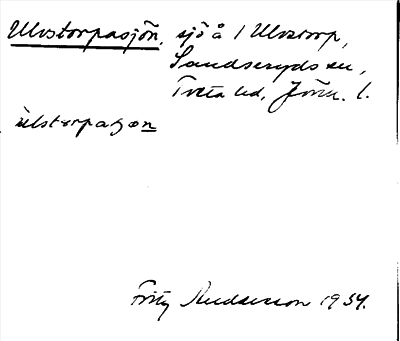 Ulvstorpasjön, sjö å 1 Ulvstorp,
Sandseryds sn,
Tveta hd, Jönk. l.
ùlstorpaʒön
Fritz Andersson 1934.